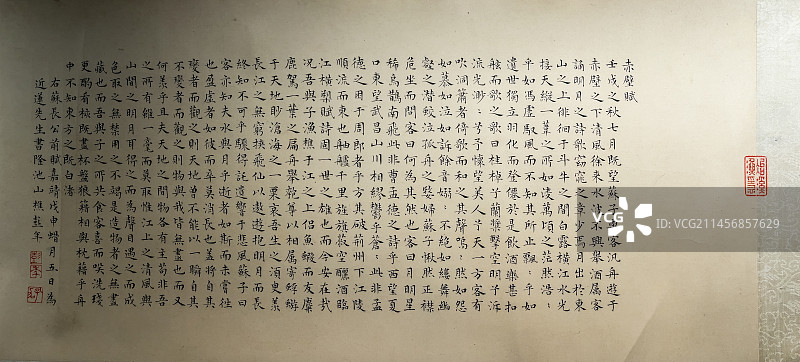 赤壁賦
壬戌之秋七月既望蘇子與客汎舟遊于
赤壁之下清風徐來水波不興舉酒属客
誦明月之詩歌窈窕之章少焉月出於東
山之上徘徊于斗牛之間白露橫江水光
接天縱一葦之所如淩萬頃之茫然浩〻
乎如馮虛馭風而不知其所止飄〻乎如
遺世獨立羽化而登僊於是飲酒樂甚扣
舷而歌之歌曰桂棹子蘭槳擊空明子泝
流光渺〻兮予懷望美人兮天一方客有
吹洞簫者倚歌而和之其聲嗚〻然如怨
如慕如泣如訴餘音嫋〻不絶如縷舞幽
壑之潛蛟泣孤舟之嫠婦蘇子愀然正襟
危坐而問客曰何為其然也客曰月明星
稀烏鵲南飛此非曹孟德之詩乎西望夏
口東望武昌山川相繆鬱乎蒼〻此非孟
德之困于周郎者乎方其破荊州下江陵
順流而東也舳艫千里旌旗蔽空釃酒臨
江橫槊賦詩固一世之雄也而今安在哉
況吾與子漁樵于江之上侶魚鰕而友麋
鹿駕一葉之扁舟舉匏尊以相屬寄蜉蝣
于天地眇滄海之一粟哀吾生之須臾羨
長江之無窮挾飛仙以遨遊抱明月而長
終知不可乎驟得託遺響于悲風蘇子曰
客亦知夫水與月乎逝者如斯而未嘗往
也盈虛者如彼而卒莫消長也蓋將自其
變者而觀之則天地曾不能以一瞬自其
不變者而觀之則物與我皆無盡也而又
何羨乎且夫天地之間物各有主苟非吾
之所有雖一毫而莫取惟江上之清風與
山間之明月耳得之而為聲目遇之而成
色取之無禁用之不竭是造物者之無盡
藏也而吾與子之所共食客喜而咲洗琖
更酌肴核既盡杯盤狼籍相與枕藉乎舟
中不知東方之既白
右蘇長公前賦嘉靖戊申臘月五日為
近道先生書隆池山樵彭年
VCG211456857629